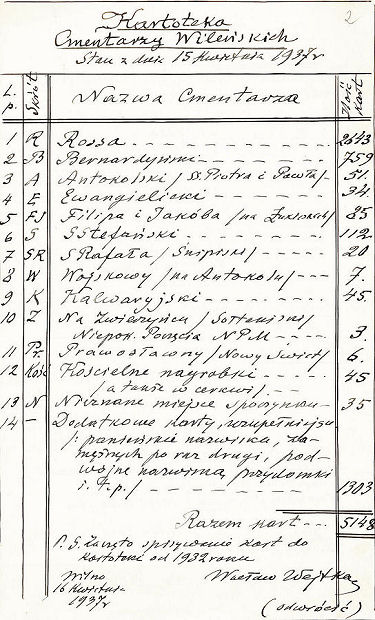 2
Kartoteka
Cmentarzy Wileńskich
Stan z dnia 15 Kwietnia 1937r
L.p. Skrót Nazwa Cmentarza Ilość kart
1 R Rossa 2643
2 B Bernardyński 759
3 A Antokolski /Śś. Piotra i Pawła/ 51.
4 E Ewangielicki 34
5 FJ Filipa i Jakóba /na Łukiszkach/ 85
6 S S Stefański 112
7 SR S Rafała /Śnipiszki/ 20
8 W Wojskowy /na Antokolu/ 7.
9 K Kalwaryjski 45.
10 Z Na Zwierzyńcu /Sołtaniszki/
Niepok. Poczęcia NPM 3.
11 Pr. Prawosławny /Nowy Świat/ 6.
12 Kość Kościelne nagrobki
/a także w cerkwi/ 45
13 N Nieznane miejsce spoczynku 35
14 — Dodatkowe karty, uzupełniające
/: panieńskie nazwiska, za-
mężnych po raz drugi, pod-
wójne nazwiska, przydomki
i.t.p./ 1303
Razem kart 5148
P.S. Zaczęto spisywanie kart do
kartoteki od 1932 roku
Wilno
16 Kwietnia
1937r
Wacław Wejtko
(odwrócić)